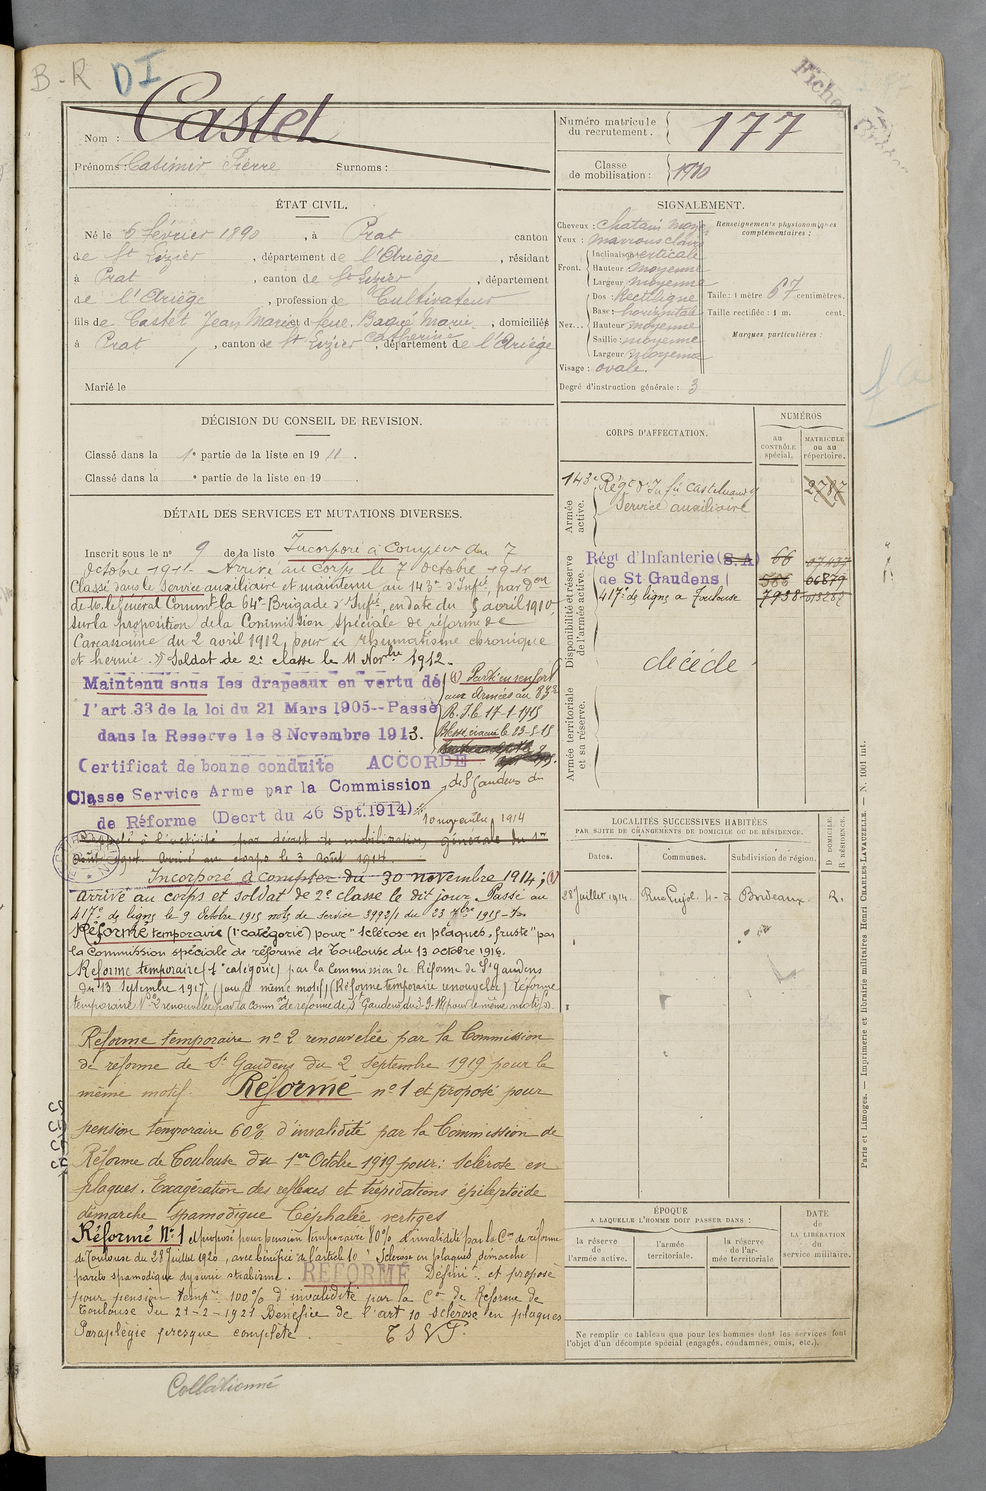 B-R DI
Fiche
Nom : Castet
Prénoms : Casimir Pierre Surnoms :
Numéro matricule du recrutement. 177
Classe de mobilisation : 1910
ÉTAT CIVIL.
Né le 6 Février 1890, à Prat canton
de St Lizier, département de l'Ariège, résidant
à Prat, canton de St Lizier, département
de l'Ariège, profession de Cultivateur
fils de Castet Jean Marie et d feue Baqué Marie Catherine, domiciliés
à Prat, canton de St Lizier, département de l'Ariège
Marié le
SIGNALEMENT.
Cheveux : chatain moy.
Yeux : marrons clairs
Front. Inclinaison verticale
Hauteur moyenne
Largeur moyenne
Nez... Dos : Rectiligne
Base : horizontale
Hauteur moyenne
Saillie : moyenne
Largeur : moyenne
Visage : ovale.
Degré d'instruction générale : 3
Renseignements physionomiques complémentaires :
Taille : 1 mètre 67 centimètres.
Taille rectifiée : 1 m. cent.
Marques particulières :
DÉCISION DU CONSEIL DE REVISION.
Classé dans la 1e partie de la liste en 1911.
Classé dans la e partie de la liste en 19 .
DÉTAIL DES SERVICES ET MUTATIONS DIVERSES.
Inscrit sous le no 9 de la liste Incorporé à compter du 7
octobre 1911. Arrivé au corps le 7 octobre 1911
Classé dans le service auxiliaire et maintenu au 143e d'Infie, par don
de M. le Général Commt la 64e Brigade d'Infie, en date du 5 avril 1910,
sur la proposition de la Commission spéciale de réforme de
Carcassonne du 2 avril 1912, pour rhumatisme chronique
et hernie. Soldat de 2e classe le 11 Novbre 1912.
Maintenu sous les drapeaux en vertu de
l'art 33 de la loi du 21 Mars 1905--Passé
dans la Reserve le 8 Novembre 1913.
Certificat de bonne conduite ACCORDÉ
Classe Service Arme par la Commission
de Réforme (Decrt du 26 Spt. 1914)
de St Gaudens du
10 novembre 1914
(1) Parti en renfort
aux Armées au 83e
R.I. le 17-1-1915
Blessé, évacué le 23-5-15
Rappelé à l'activité par décret de mobilisation générale du 1er
Août 1914. Arrivé au corps le 3 août 1914.
Incorporé à compter du 30 novembre 1914; (1)
arrivé au corps et soldat de 2e classe le dit jour. Passé au
417e de ligne le 9 octobre 1915 note de service 3992/1 du 23 7bre 1915
Réformé temporaire (1e catégorie) pour "sclérose en plaques, fruste" par
la Commission spéciale de réforme de Toulouse du 13 octobre 1916.
Réforme temporaire (1e catégorie) par la Commission de Réforme de St Gaudens
du 13 Septembre 1917 (pour le même motif) (Réforme temporaire renouvelée) Réforme
temporaire No 2 renouvelée par la comm on de réforme de St Gaudens du 3-9-18 pour le même motif
Réforme temporaire no 2 renouvelée par la Commission
de réforme de St Gaudens du 2 septembre 1919 pour le
même motif. Réformé no 1 et proposé pour
pension temporaire 60% d'invalidité par la Commission de
Réforme de Toulouse du 1er Octobre 1919 pour : sclérose en
plaques. Exagération des reflexes et trépidations épileptoïde
démarche spamodique Céphalée vertiges
Réformé No 1 et proposé pour pension temporaire 80% d'invalidité par la Con de réforme
de Toulouse du 28 Juillet 1920, avec bénéfice de l'article 10 : Sclérose en plaques, démarche
paréto spamodique dysurie strabisme. REFORMÉ Définit. et proposé
pour pension tempre 100% d'invalidité par la Con de Réforme de
Toulouse du 21-2-1921 Bénéfice de l'art 10 sclérose en plaques
Paraplégie presque complète. T S V P.
Collationné
CORPS D'AFFECTATION.
NUMÉROS
au CONTRÔLE spécial.
MATRICULE ou au répertoire.
Armée active.
143e Régt d'Infie Castelnaudary 2787
Service auxiliaire
Disponibilité et réserve de l'armée active.
Régt d'Infanterie (S.A) 66
de St Gaudens 586 06879
417e de ligne à Toulouse 7938
décédé
Armée territoriale et sa réserve.
LOCALITÉS SUCCESSIVES HABITÉES
PAR SUITE DE CHANGEMENTS DE DOMICILE OU DE RÉSIDENCE.
Dates. Communes. Subdivision de région. D DOMICILE. R RÉSIDENCE.
28 Juillet 1914. Rue Pujol 4-à Bordeaux R.
ÉPOQUE
A LAQUELLE L'HOMME DOIT PASSER DANS :
la réserve de l'armée active.
l'armée territoriale.
la réserve de l'armée territoriale
DATE de LA LIBÉRATION du service militaire.
Ne remplir ce tableau que pour les hommes dont les services font
l'objet d'un décompte spécial (engagés, condamnés, omis, etc.).
Paris et Limoges. — Imprimerie et librairie militaires Henri CHARLES-LAVAUZELLE. — N. 1001 int.